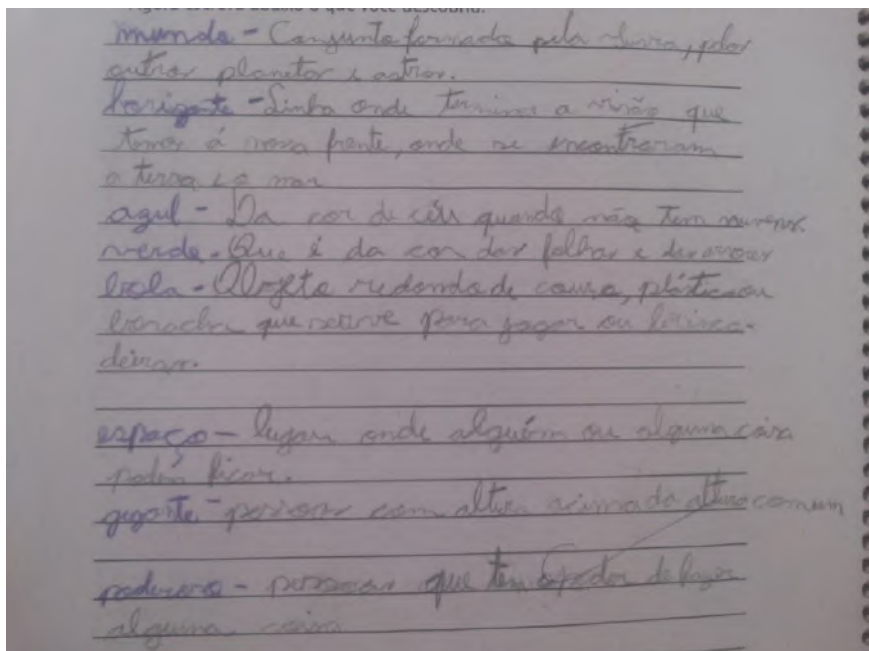 Agora escreva abaixo o que você descobriu.
mundo - Conjunto formado pela terra, pelos
outros planetas e astros.
horizonte - Linha onde termina a visão que
temos á nossa frente, onde se encontraram
a terra e o mar
azul - Da cor do céu quando não tem nuvens.
verde - Que é da cor das folhas e das arvores
bola - Objeto redondo de couro, plástico ou
borracha que serve para jogar ou brinca-
deiras.
espaço - lugar onde alguém ou alguma coisa
podia ficar.
gigante - pessoas com altura acima da altura comum
poderoso - pessoas que tem poder de fazer
alguma coisa